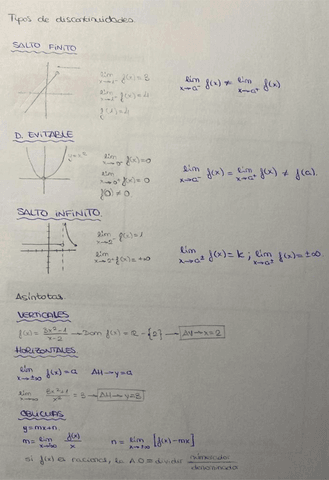 Tipos de discontinuidades.
SALTO FINITO
lim x→1⁻ f(x)=3
lim x→1⁺ f(x)=4
f(1)=4
lim x→a⁻ f(x) ≠ lim x→a⁺ f(x)
D. EVITABLE
y=x²
lim x→0⁻ f(x)=0
lim x→0⁺ f(x)=0
f(0)≠0
lim x→a⁻ f(x) = lim x→a⁺ f(x) ≠ f(a).
SALTO INFINITO.
lim f(x)=1
lim f(x)=+∞
lim x→a± f(x)=k ; lim x→a± f(x)=±∞.
Asíntotas.
VERTICALES
f(x)= 3x²-1 / x-2 → Dom f(x)=ℝ-{2} → AV→x=2
HORIZONTALES
lim x→±∞ f(x)=a AH→y=a
OBLICUAS
y=mx+n
m= lim x→±∞ f(x)/x n= lim x→±∞ [f(x)-mx]
si f(x) es racional, la A.O = dividir numerador / denominador